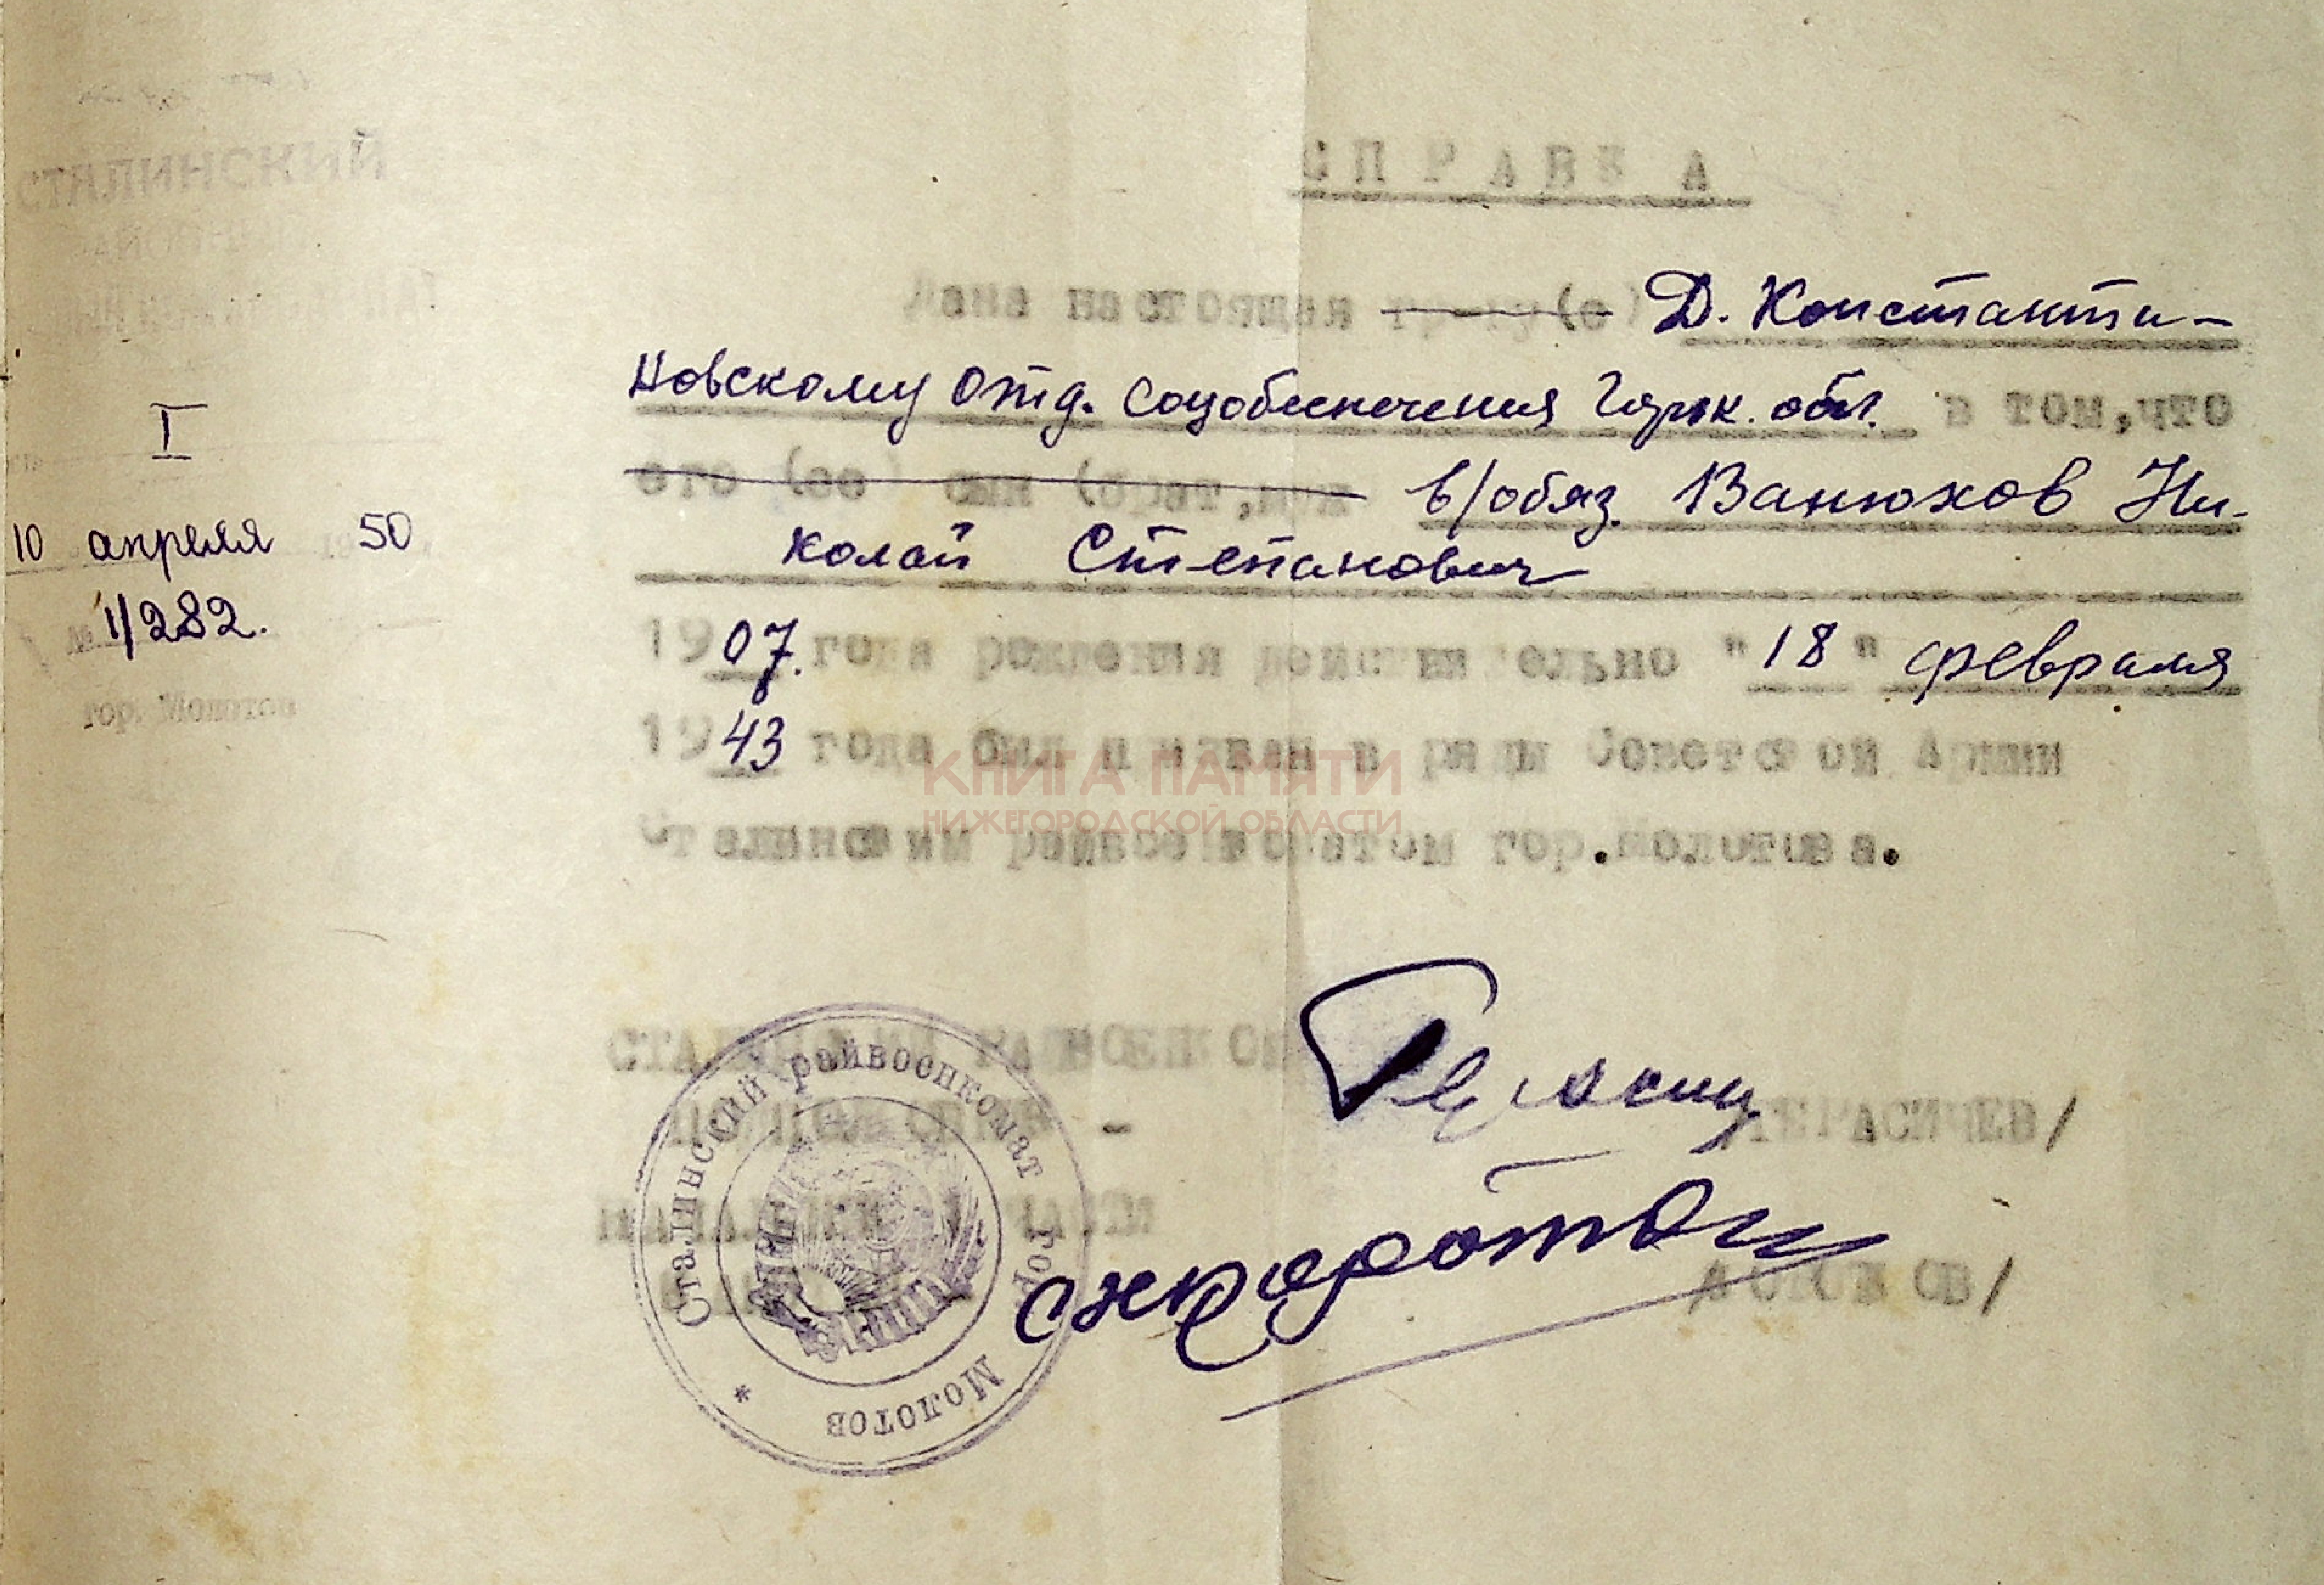 СТАЛИНСКИЙ
РАЙОННЫЙ
I
10 апреля 1950 г.
№ 1/282.
гор. Молотов
СПРАВКА
Дана настоящая гр-ну(е) Д. Константи-
новскому Отд. Соцобеспечения Горьк. обл. в том, что
его (ее) сын (брат, муж в/обяз. Ванюхов Ни-
колай Степанович
1907. года рождения действительно "18" февраля
1943 года был призван в ряды Советской Армии
Сталинским райвоенкоматом гор. Молотова.
КНИГА ПАМЯТИ
НИЖЕГОРОДСКОЙ ОБЛАСТИ
СТАЛИНСКИЙ РАЙВОЕНКОМ
ПОДПОЛКОВНИК -
/ГЕРАСИМЕВ/
НАЧАЛЬНИК 1 ЧАСТИ
Сталинский райвоенкомат гор. Молотов *